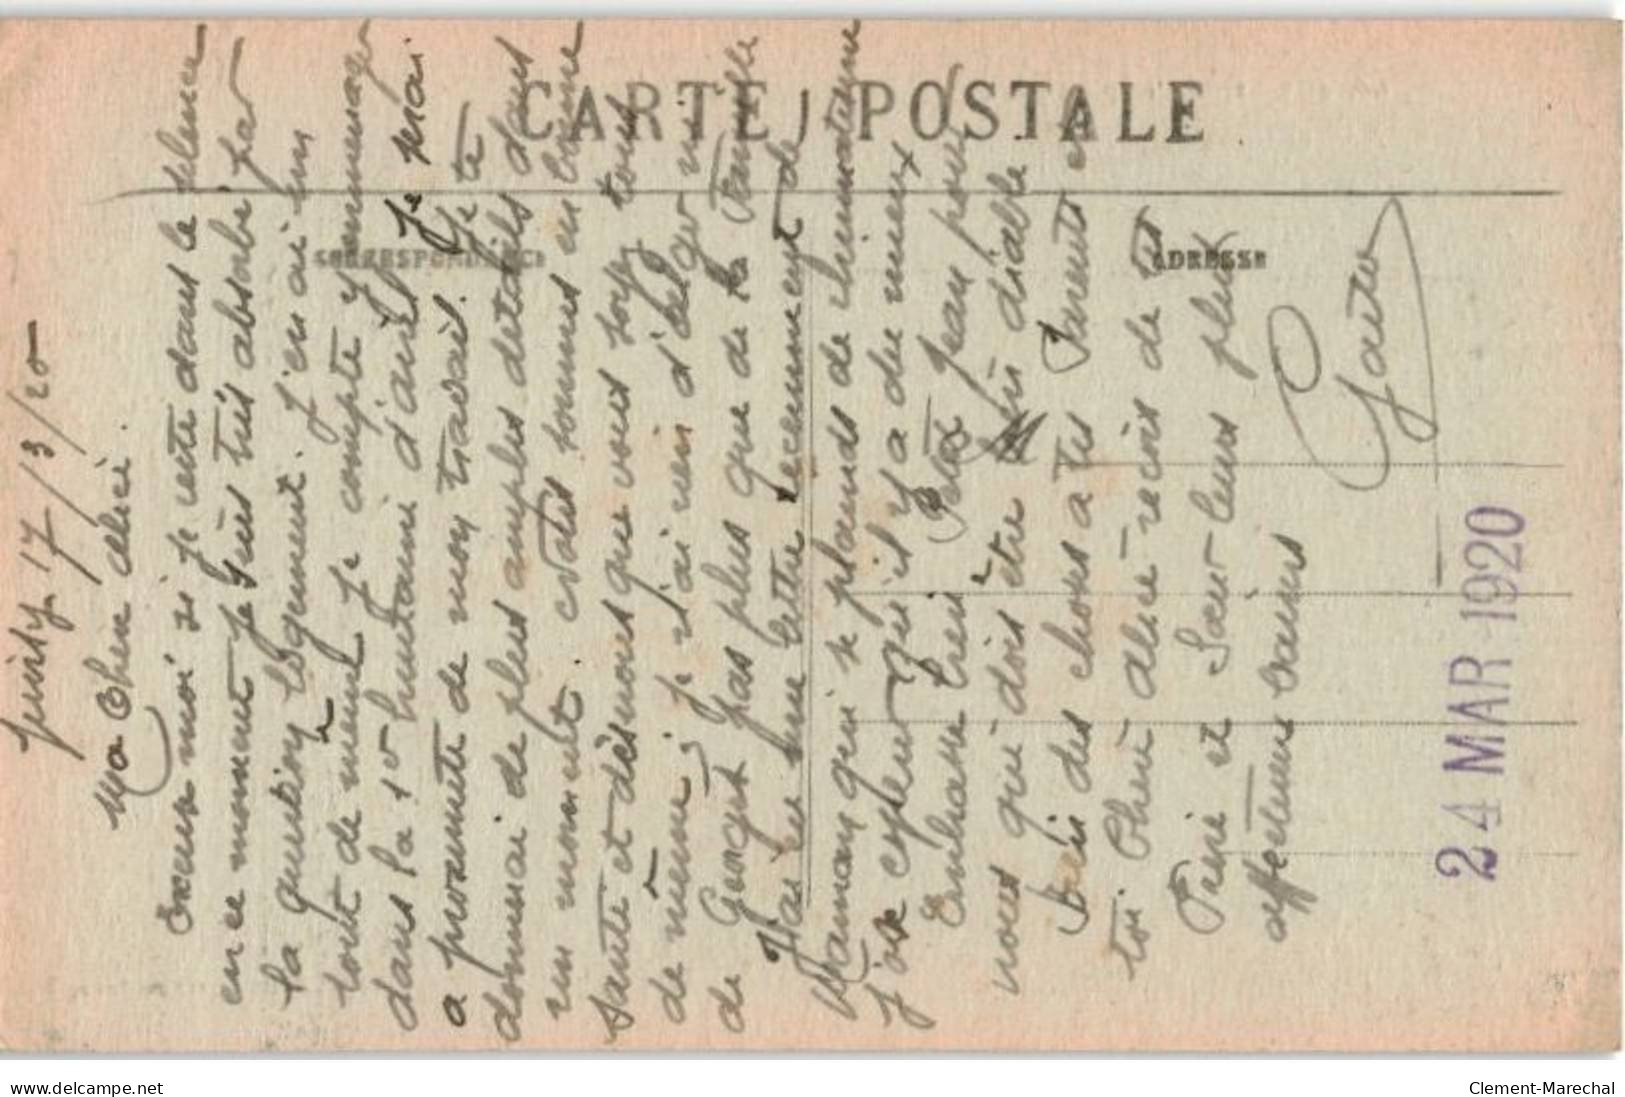 CARTE POSTALE
CORRESPONDANCE
ADRESSE
Juvisy 17/3/20
Ma Chère Alice.
Excuse moi si je reste dans le silence
en ce moment je suis très absorbé par
la question logement. J'en ai un
tout de même je compte y emmenager
dans la 1re huitaine d'avril. Je serai
a proximité de mon travail. Je te
donnerai de plus amples détails dans
un moment. sommes en bonne
Santé et désirons que vous soyez tous
de même, je n'ai rien d'
de Georges pas plus que de la famille
Pas eu une lettre recemment de
Maman qui se plaind de rhumatisme
j'ose esperer qu'il y a du mieux
Embrasse bien Petit Jean pour
nous qui dois être bien diable
Bien des choses a tes Parents et
toi Chère Alice recois de tes
Frère et Sœur leurs plus
affectueux baisers
Gaston
24 MAR 1920
www.delcampe.net
Clement-Marechal